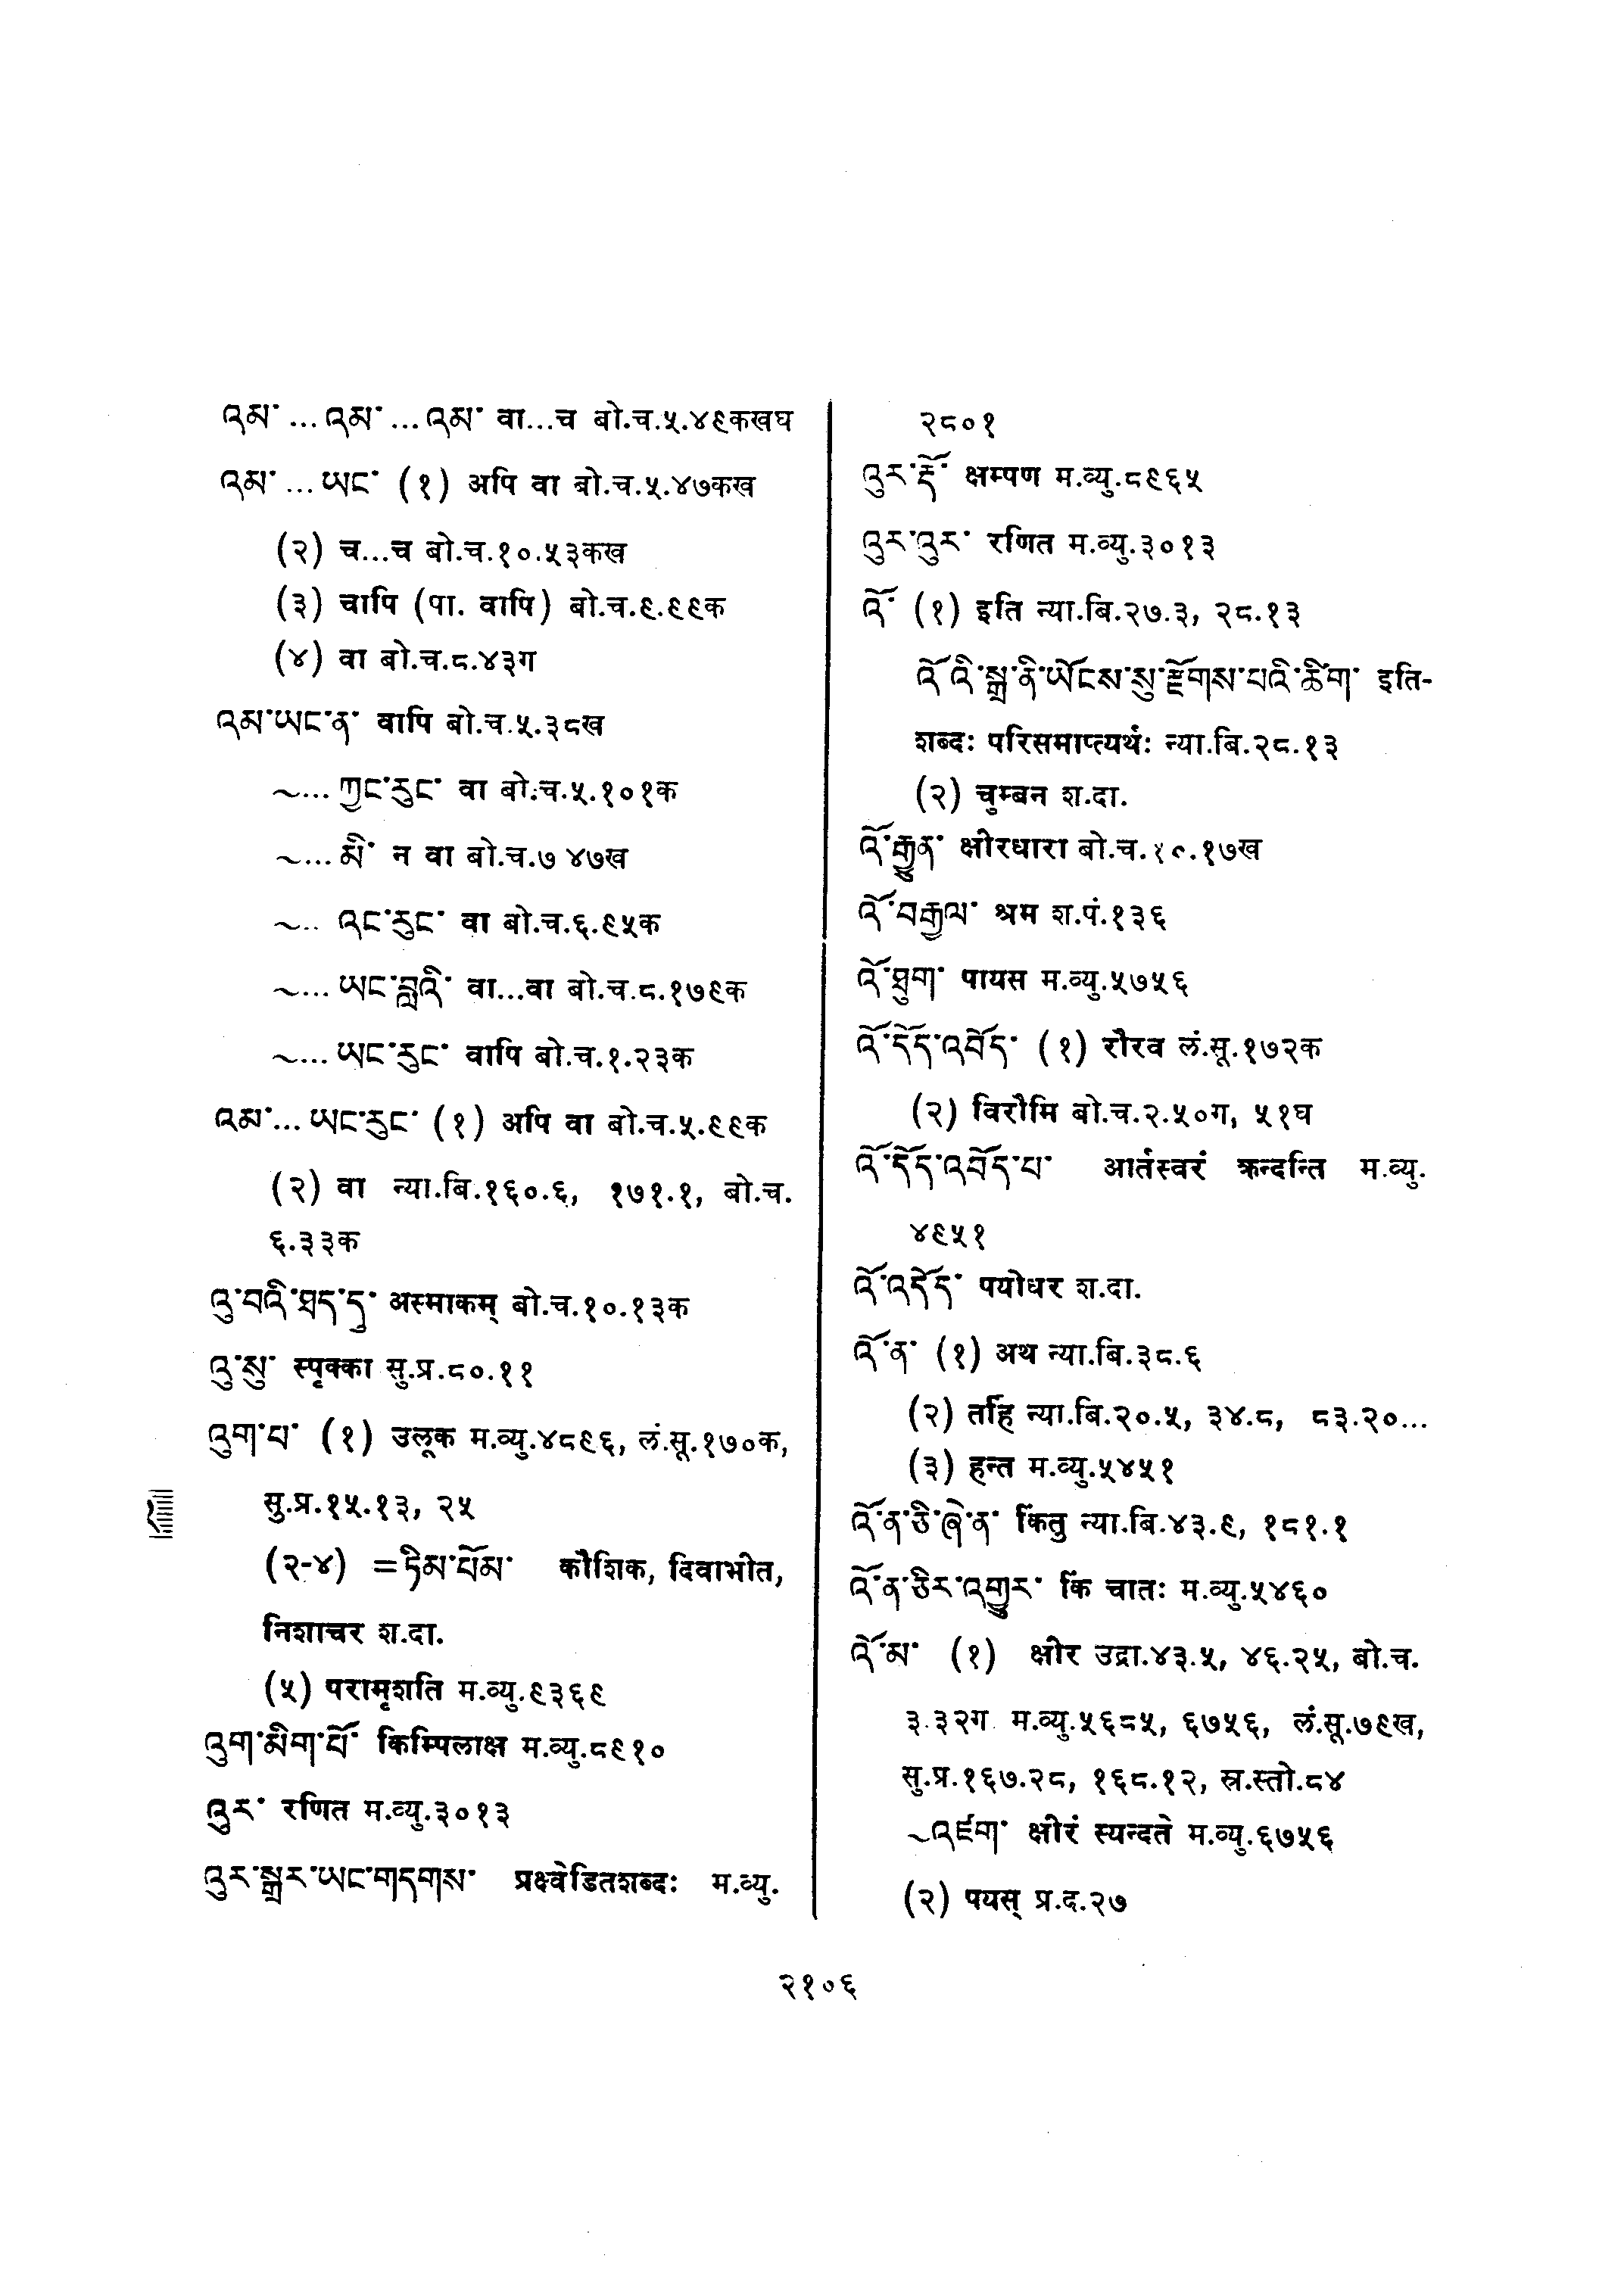 འམ་ … འམ་ … འམ་ वा…च बो.च.५.४९कखघ
འམ་ … ཡང་ (१) अपि वा बो.च.५.४७कख
(२) च…च बो.च.१०.५३कख
(३) चापि (पा. वापि) बो.च.९.९९क
(४) वा बो.च.८.४३ग
འམ་ཡང་ན་ वापि बो.च.५.३८ख
~… ཀྱང་རུང་ वा बो.च.५.१०१क
~… མི་ न वा बो.च.७ ४७ख
~.. འང་རུང་ वा बो.च.६.९५क
~… ཡང་བླའི་ वा…वा बो.च.८.१७९क
~… ཡང་རུང་ वापि बो.च.१.२३क
འམ་… ཡང་རུང་ (१) अपि वा बो.च.५.९९क
(२) वा न्या.बि.१६०.६, १७१.१, बो.च.
६.३३क
འུ་བའི་ཐད་དུ་ अस्माकम् बो.च.१०.१३क
འུ་སུ་ स्पृक्का सु.प्र.८०.११
འུག་པ་ (१) उलूक म.व्यु.४८९६, लं.सू.१७०क,
सु.प्र.१५.१३, २५
(२-४) =ཏིམ་པོམ་ कौशिक, दिवाभीत,
निशाचर श.दा.
(५) परामृशति म.व्यु.९३६९
འུག་མིག་པོ་ किम्पिलाक्ष म.व्यु.८९१०
འུར་ रणित म.व्यु.३०१३
འུར་སྒྲར་ཡང་གདགས་ प्रक्ष्वेडितशब्दः म.व्यु.
२८०१
འུར་རྡོ་ क्षम्पण म.व्यु.८९६५
འུར་འུར་ रणित म.व्यु.३०१३
འོ་ (१) इति न्या.बि.२७.३, २८.१३
འོ་འི་སྒྲ་ནི་ཡོངས་སུ་རྫོགས་པའི་ཚིག་ इति-
शब्दः परिसमाप्त्यर्थः न्या.बि.२८.१३
(२) चुम्बन श.दा.
འོ་རྒྱུན་ क्षीरधारा बो.च.१०.१७ख
འོ་བརྒྱལ་ श्रम श.पं.१३६
འོ་ཐུག་ पायस म.व्यु.५७५६
འོ་དོད་འབོད་ (१) रौरव लं.सू.१७२क
(२) विरौमि बो.च.२.५०ग, ५१घ
འོ་དོད་འབོད་པ་ आर्तस्वरं क्रन्दन्ति म.व्यु.
४९५१
འོ་འདོད་ पयोधर श.दा.
འོ་ན་ (१) अथ न्या.बि.३८.६
(२) तर्हि न्या.बि.२०.५, ३४.८, ८३.२०…
(३) हन्त म.व्यु.५४५१
འོ་ན་ཅི་ཞེ་ན་ किंतु न्या.बि.४३.९, १८१.१
འོ་ན་ཅིར་འགྱུར་ किं चातः म.व्यु.५४६०
འོ་མ་ (१) क्षीर उद्रा.४३.५, ४६.२५, बो.च.
३.३२ग म.व्यु.५६८५, ६७५६, लं.सू.७९ख,
सु.प्र.१६७.२८, १६८.१२, स्र.स्तो.८४
~འཛག་ क्षीरं स्यन्दते म.व्यु.६७५६
(२) पयस् प्र.द.२७
२१०६